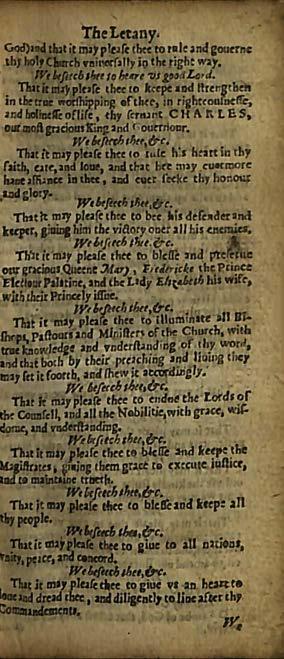 The Letany.
God) and that it may pleaſe thee to rule and gouerne
thy holy Church vniuerſally in the right way.
We beſeech thee to heare vs good Lord.
That it may pleaſe thee to keepe and ſtrengthen
in the true worſhipping of thee, in righteouſneſſe,
and holineſſe of life, thy ſeruant CHARLES,
our moſt gracious King and Gouernour.
We beſeech thee, &c.
That it may pleaſe thee to rule his heart in thy
faith, care, and loue, and that hee may euermore
haue affiance in thee, and euer ſeeke thy honour
and glory.
We beſeech thee, &c.
That it may pleaſe thee to bee his defender and
keeper, giuing him the victory ouer all his enemies.
We beſeech thee, &c.
That it may pleaſe thee to bleſſe and preſerue
our gracious Queene Mary, Fredericke the Prince
Elector Palatine, and the Lady Elizabeth his wife,
with their Princely iſſue.
We beſeech thee, &c.
That it may pleaſe thee to illuminate all Bi-
ſhops, Paſtours and Miniſters of the Church, with
true knowledge and vnderſtanding of thy word,
and that both by their preaching and liuing they
may ſet it foorth, and ſhew it accordingly.
We beſeech thee, &c.
That it may pleaſe thee to endue the Lords of
the Counſell, and all the Nobilitie, with grace, wiſ-
dome, and vnderſtanding.
We beſeech thee, &c.
That it may pleaſe thee to bleſſe and keepe the
Magiſtrates, giuing them grace to execute iuſtice,
and to maintaine trueth.
We beſeech thee, &c.
That it may pleaſe thee to bleſſe and keepe all
thy people.
We beſeech thee, &c.
That it may pleaſe thee to giue to all nations,
vnity, peace, and concord.
We beſeech thee, &c.
That it may pleaſe thee to giue vs an heart to
loue and dread thee, and diligently to liue after thy
Commandements.
We